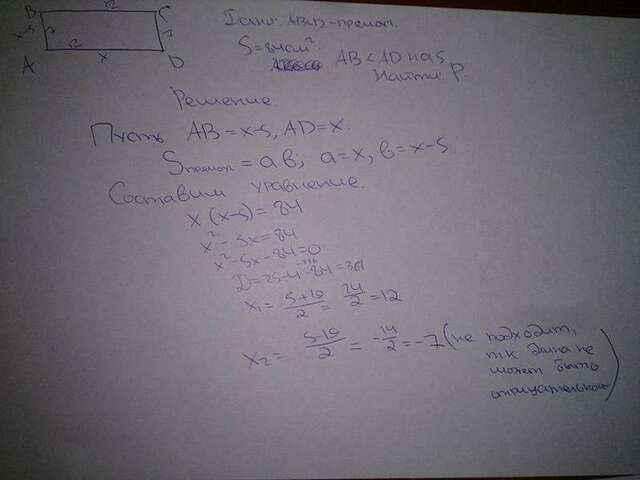 B 12 C
x-5 7 7
12
A x D
Дано: ABCD-прямоуг.
S=84см²
AB < AD на 5
Найти: P.
Решение
Пусть AB=x-5, AD=x.
Sпрямоуг = ab; a=x, b=x-5
Составим уравнение.
x(x-5)=84
x²-5x=84
x²-5x-84=0
D=25-4·-84=361
x₁= 5+19/2 = 24/2 =12
x₂= 5-19/2 = -14/2 =-7 (не подходит,
т.к длина не
может быть
отрицательной)